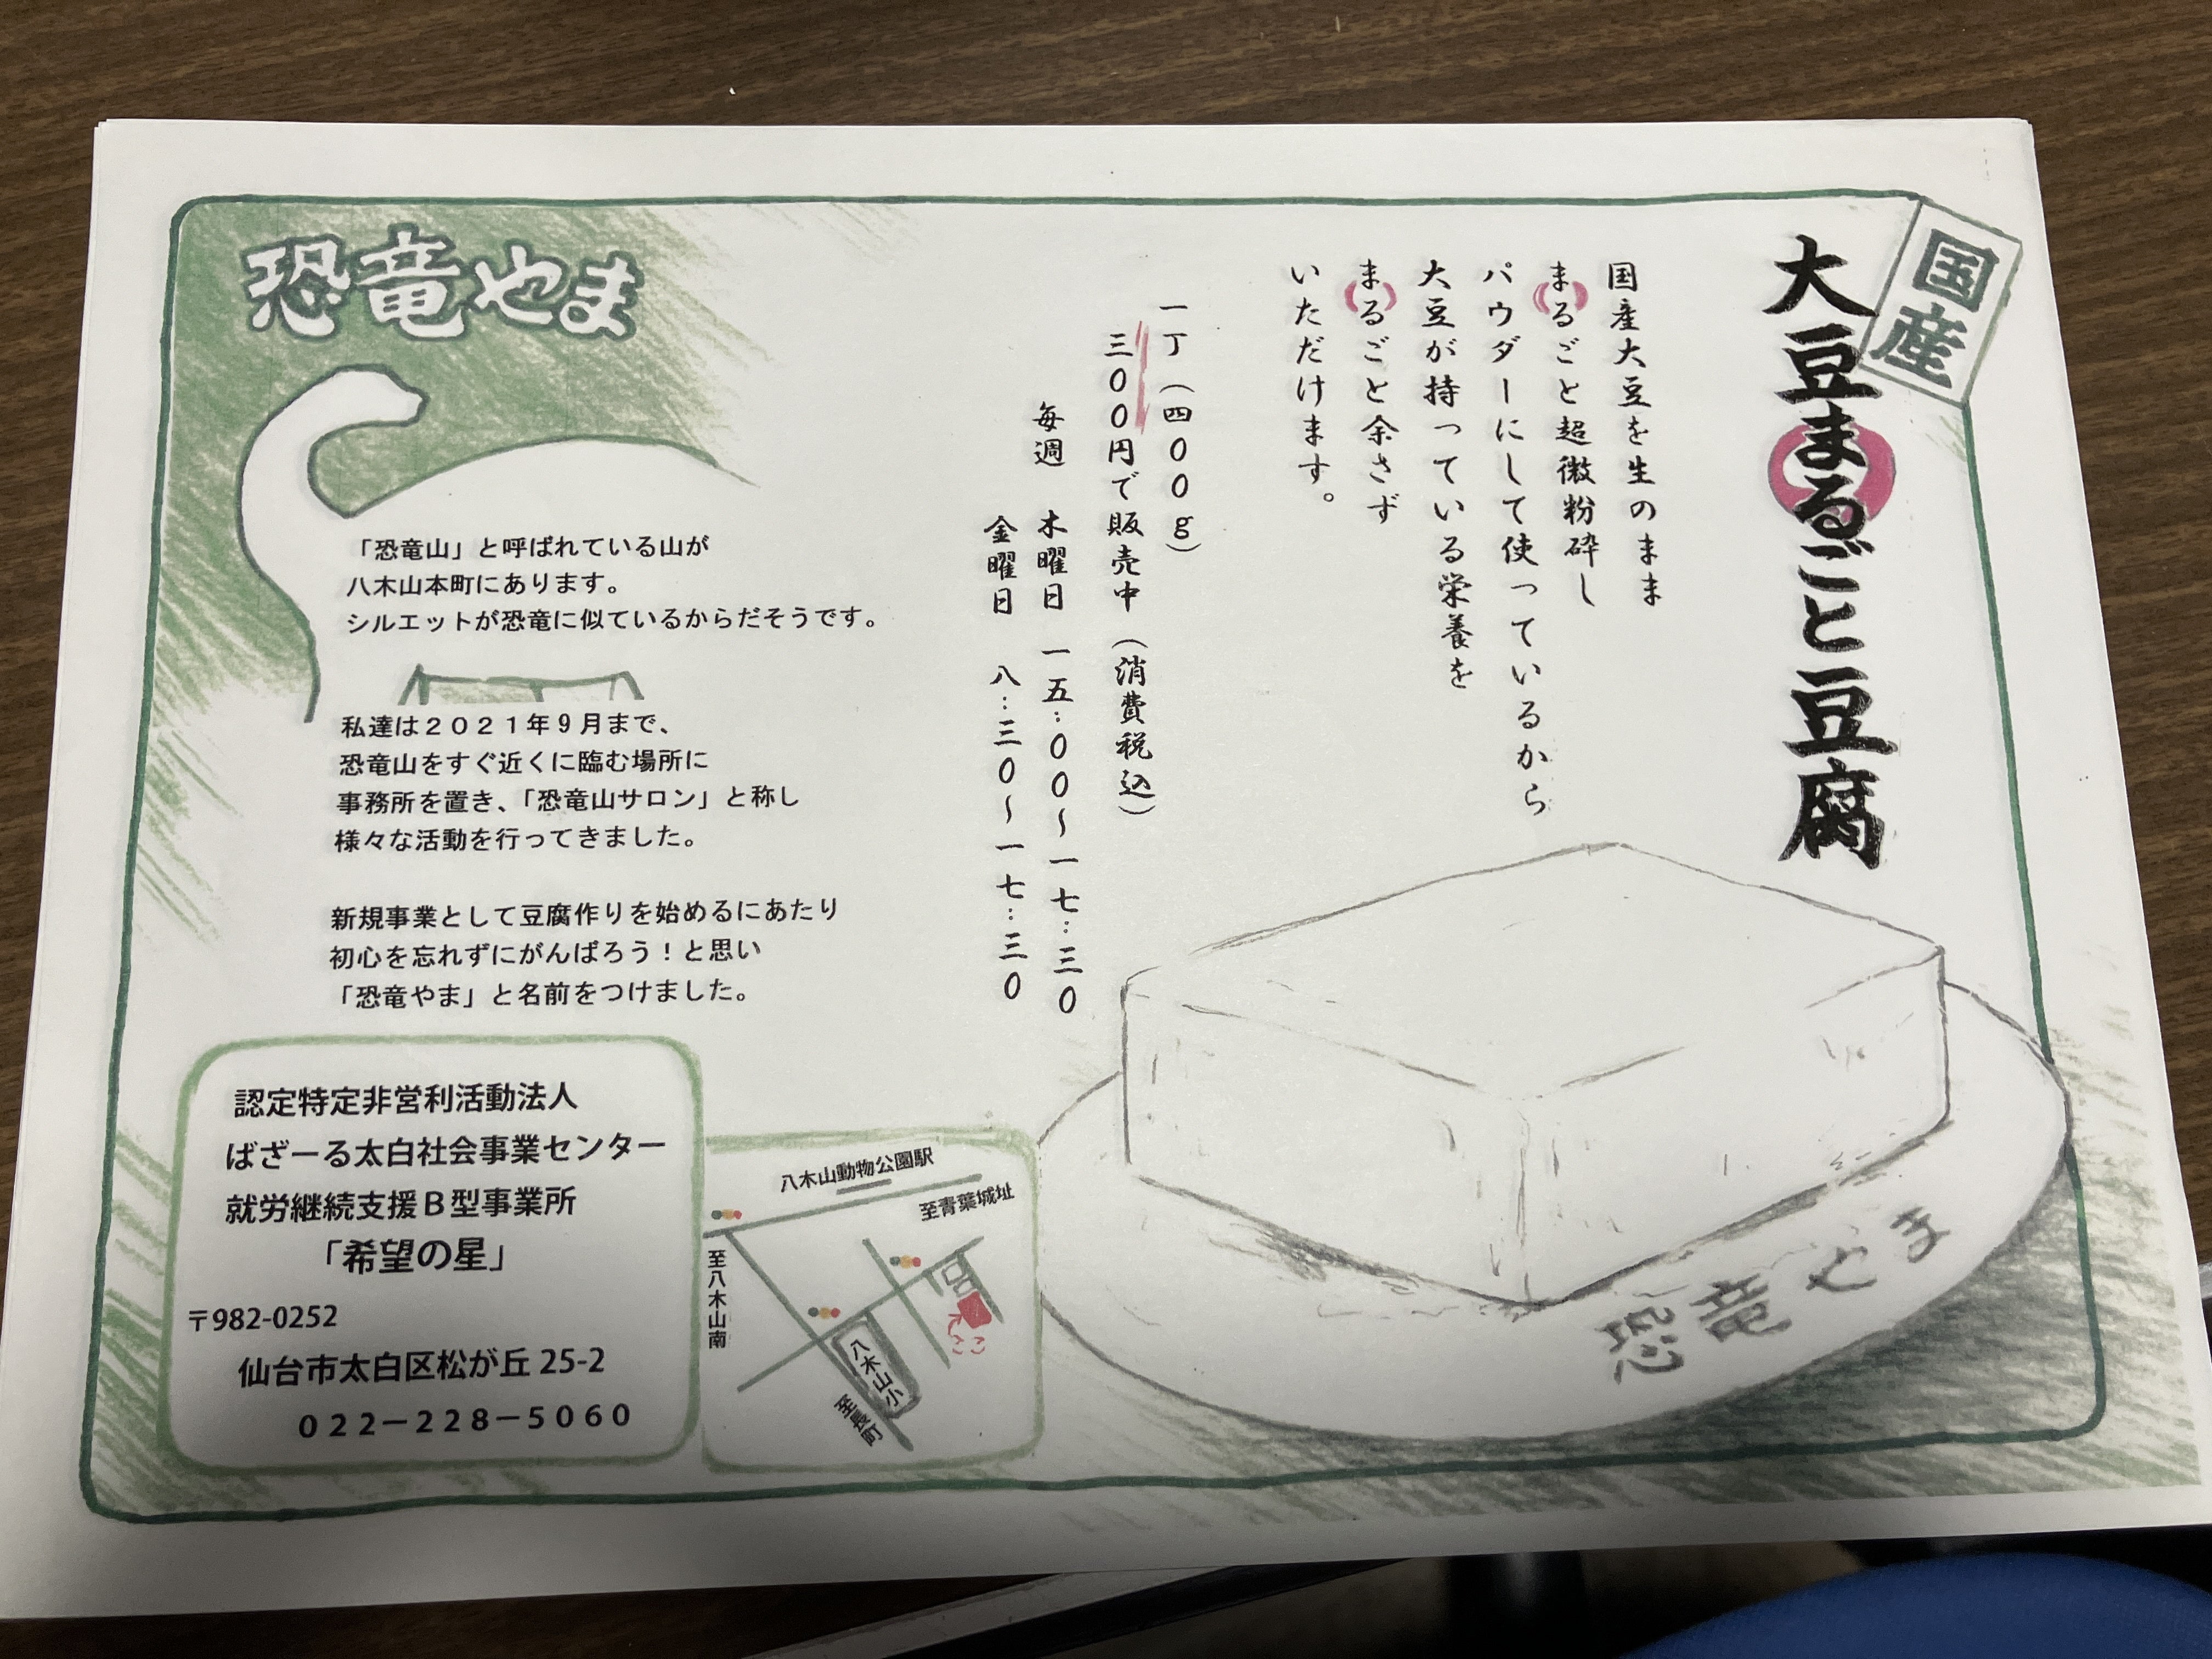 国産
大豆まるごと豆腐
国産大豆を生のまま
まるごと超微粉砕し
パウダーにして使っているから
大豆が持っている栄養を
まるごと余さず
いただけます。
一丁（四００ｇ）
三００円で販売中（消費税込）
毎週　木曜日　一五：００～一七：三０
金曜日　八：三０～一七：三０
恐竜やま
恐竜やま
「恐竜山」と呼ばれている山が
八木山本町にあります。
シルエットが恐竜に似ているからだそうです。
私達は２０２１年９月まで、
恐竜山をすぐ近くに臨む場所に
事務所を置き、「恐竜山サロン」と称し
様々な活動を行ってきました。
新規事業として豆腐作りを始めるにあたり
初心を忘れずにがんばろう！と思い
「恐竜やま」と名前をつけました。
認定特定非営利活動法人
ばざーる太白社会事業センター
就労継続支援Ｂ型事業所
「希望の星」
〒982-0252
仙台市太白区松が丘 25-2
０２２－２２８－５０６０
八木山動物公園駅
至青葉城址
至八木山南
八木山小
至長町
ここ